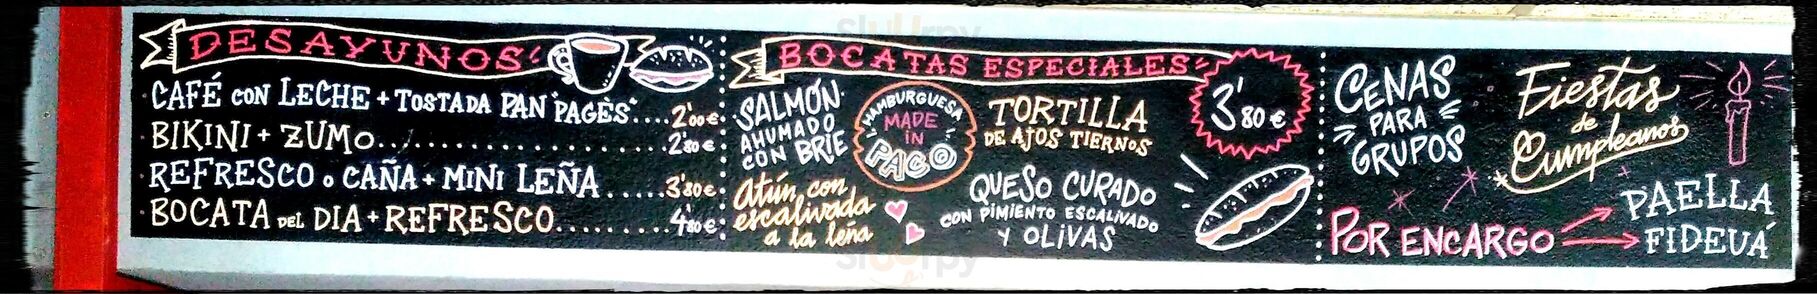 DESAYUNOS
CAFÉ CON LECHE + TOSTADA PAN "PAGÈS"....2'00€
BIKINI + ZUMO...................2'80€
REFRESCO o CAÑA + MINI LEÑA.....3'80€
BOCATA DEL DIA + REFRESCO.........4'80€
BOCATAS ESPECIALES
3'80€
SALMÓN
AHUMADO
CON BRIE
HAMBURGUESA
MADE
IN
PACO
TORTILLA
DE AJOS TIERNOS
Atún con
escalivada
a la leña
QUESO CURADO
CON PIMIENTO ESCALIVADO
Y OLIVAS
CENAS
PARA
GRUPOS
Fiestas
de
Cumpleanos
POR ENCARGO
PAELLA
FIDEUÁ
sluurpy
sluurpy